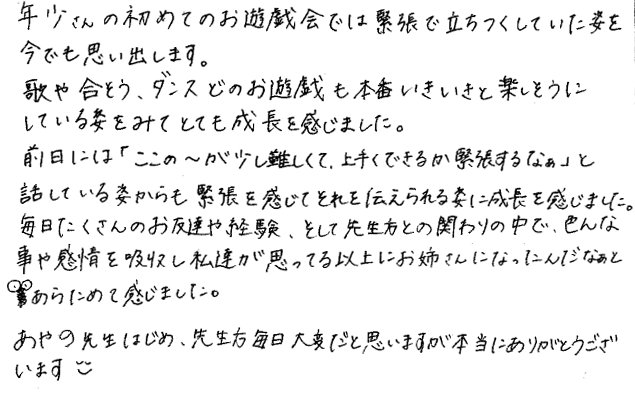 年少さんの初めてのお遊戯会では緊張で立ちつくしていた姿を
今でも思い出します。
歌や合そう、ダンスどのお遊戯も本番いきいきと楽しそうに
している姿をみてとても成長を感じました。
前日には「ここの〜が少し難しくて、上手くできるか緊張するなぁ」と
話している姿からも緊張を感じてそれを伝えられる姿に成長を感じました。
毎日たくさんのお友達や経験、そして先生方との関わりの中で、色んな
事や感情を吸収し私達が思ってる以上にお姉さんになったんだなぁと
あらためて感じました。
あやの先生はじめ、先生方毎日大変だと思いますが本当にありがとうござ
います